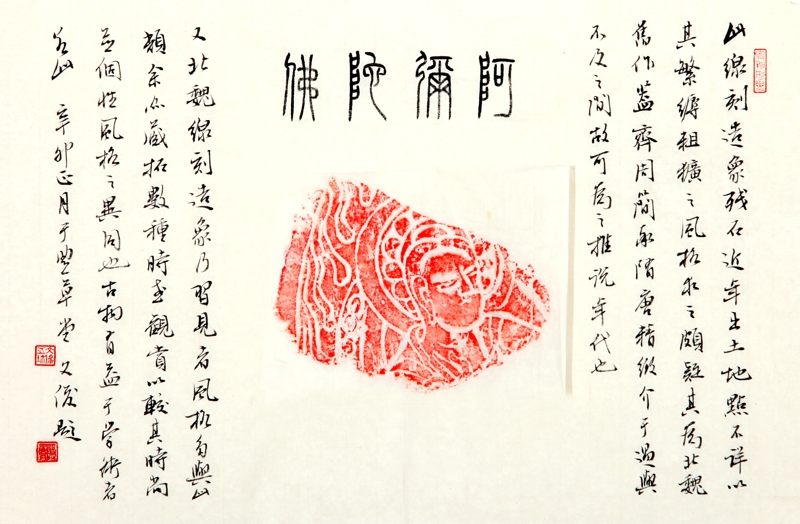 阿彌陀佛
此線刻造象殘石近年出土地點不詳以
其繁縟粗獷之風格求之頗疑其爲北魏
舊作蓋齊周簡 隋唐精緻介于過與
不及之間故可爲之推說年代也
又北魏線刻造象乃習見者風格多與此
類余亦藏拓數種時 觀賞以較其時尚
並個性風格之異同也古物有益于學術者
若此 辛卯正月于豐草堂 文俊題